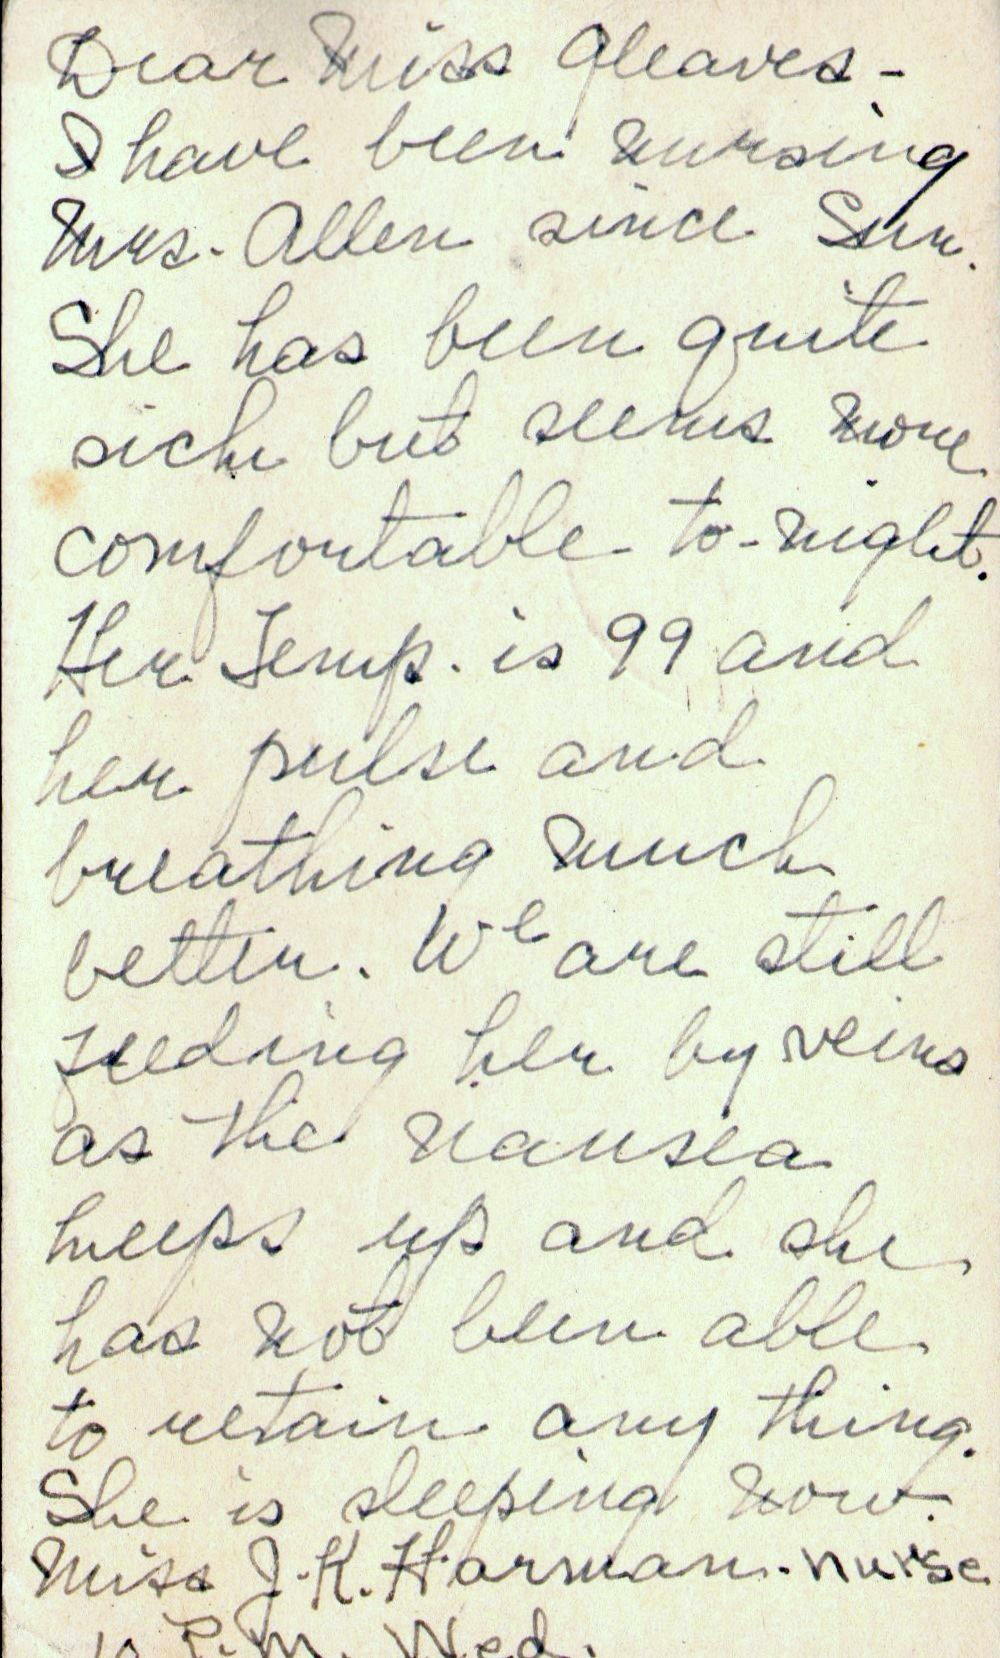 Dear Miss Gleaves -
I have been nursing
Mrs. Allen since Sun.
She has been quite
sick but seems more
comfortable to-night.
Her Temp. is 99 and
her pulse and
breathing much
better. We are still
feeding her by veins
as the nausea
keeps up and she
has not been able
to retain any thing.
She is sleeping now.
Miss J.K. Harman. nurse
10 P.M. Wed.